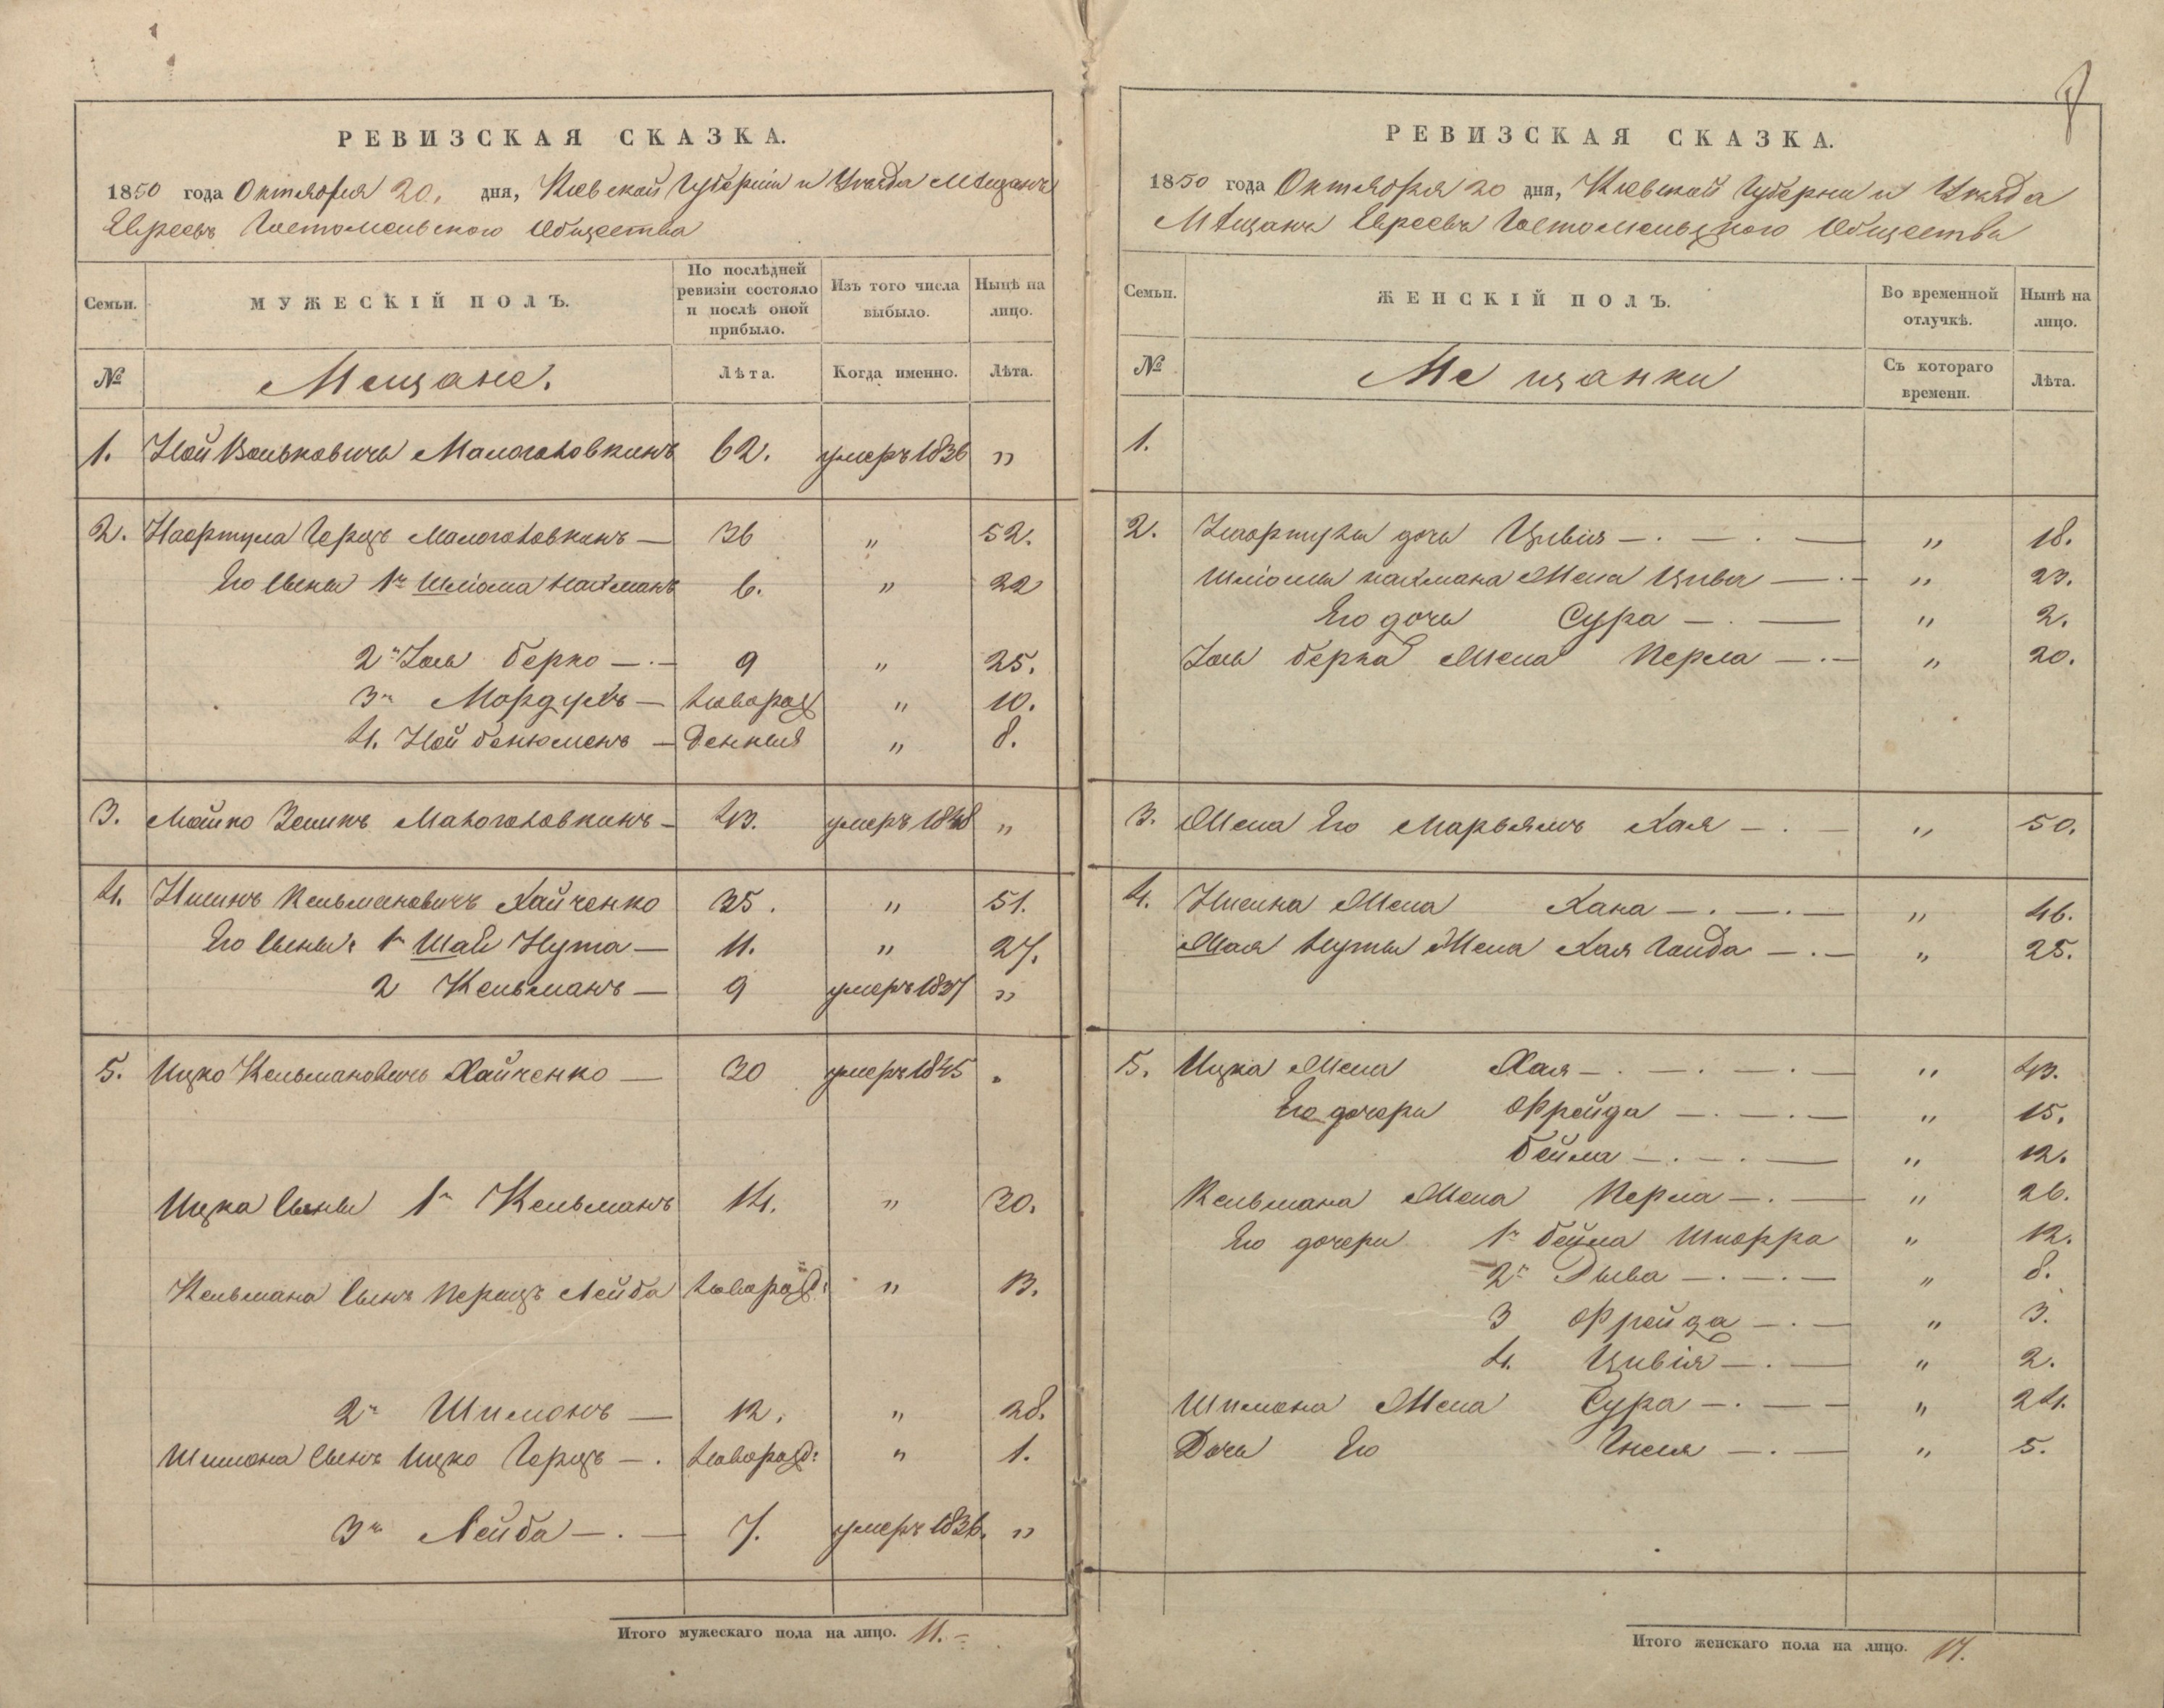 РЕВИЗСКАЯ СКАЗКА.
1850 года Октября 20. дня, Кіевской Губерніи и Уѣзда Мѣщанъ
Евреевъ Гостомельского Общества
Семьи. МУЖЕСКІЙ ПОЛЪ. По послѣдней ревизіи состояло и послѣ оной прибыло. Изъ того числа выбыло. Нынѣ на лицо.
№ Мещане. Лѣта. Когда именно. Лѣта.
1. Ной Вольковичъ Малоголовкинъ 62. умеръ 1836 „
2. Герцъ Малоголовкинъ — 36 „ 52.
Его Сыны 1й Шліома Нахманъ 6. „ 22
2й Іось Берко — . — 9 „ 25.
3й Мордухъ — новорож „ 10.
4. Ной Бенюменъ — денныя „ 8.
3. Мойко Зеликъ Малоголовкинъ — 43. умеръ 1848 „
4. Нисинъ Кельмановичъ Хайченко 35. „ 51.
Его Сыны: 1й Шая Нута — 11. „ 27.
2 Кельманъ — 9 умеръ 1837 „
5. Ицко Кельмановичъ Хайченко — 30 умеръ 1845 „
Ицка Сыны 1й Кельманъ 14. „ 30.
Кельмана Сынъ Перецъ Лейба новорожд: „ 13.
2й Шимонъ — 12. „ 28.
Шимона Сынъ Ицко Герцъ — . новорожд: „ 1.
3й Лейба — . — 7. умеръ 1836. „
Итого мужескаго пола на лицо. 11. —
РЕВИЗСКАЯ СКАЗКА.
1850 года Октября 20 дня, Кіевской Губерніи и Уѣзда
Мѣщанъ Евреевъ Гостомельского Общества
Семьи. ЖЕНСКІЙ ПОЛЪ. Во временной отлучкѣ. Нынѣ на лицо.
№ Мещанки Съ котораго времени. Лѣта.
1.
2. дочь Цивія — . — . — „ 18.
Шліомы Нахмана Жена Цива — . — „ 23.
Его дочь Сура — . — „ 2.
Іось Берка Жена Перла — . — „ 20.
3. Жена Его Марьямъ Хая — . — „ 50.
4. Нисина Жена Хана — . — . — „ 46.
Шая Нуты Жена Хая Гинда — . — „ 25.
5. Ицка Жена Хая — . — . — . — „ 43.
Его дочери Фрейда — . — . — „ 15.
Бейла — . — . — „ 12.
Кельмана Жена Перла — . — „ 26.
Его дочери 1й Бейла Шпорра „ 12.
2й Рыва — . — . — „ 8.
3 Фрейда — . — „ 3.
4. Цивія — . — „ 2.
Шимона Жена Сура — . — — „ 24.
Дочь Его Гнеся — . — „ 5.
Итого женскаго пола на лицо. 17.